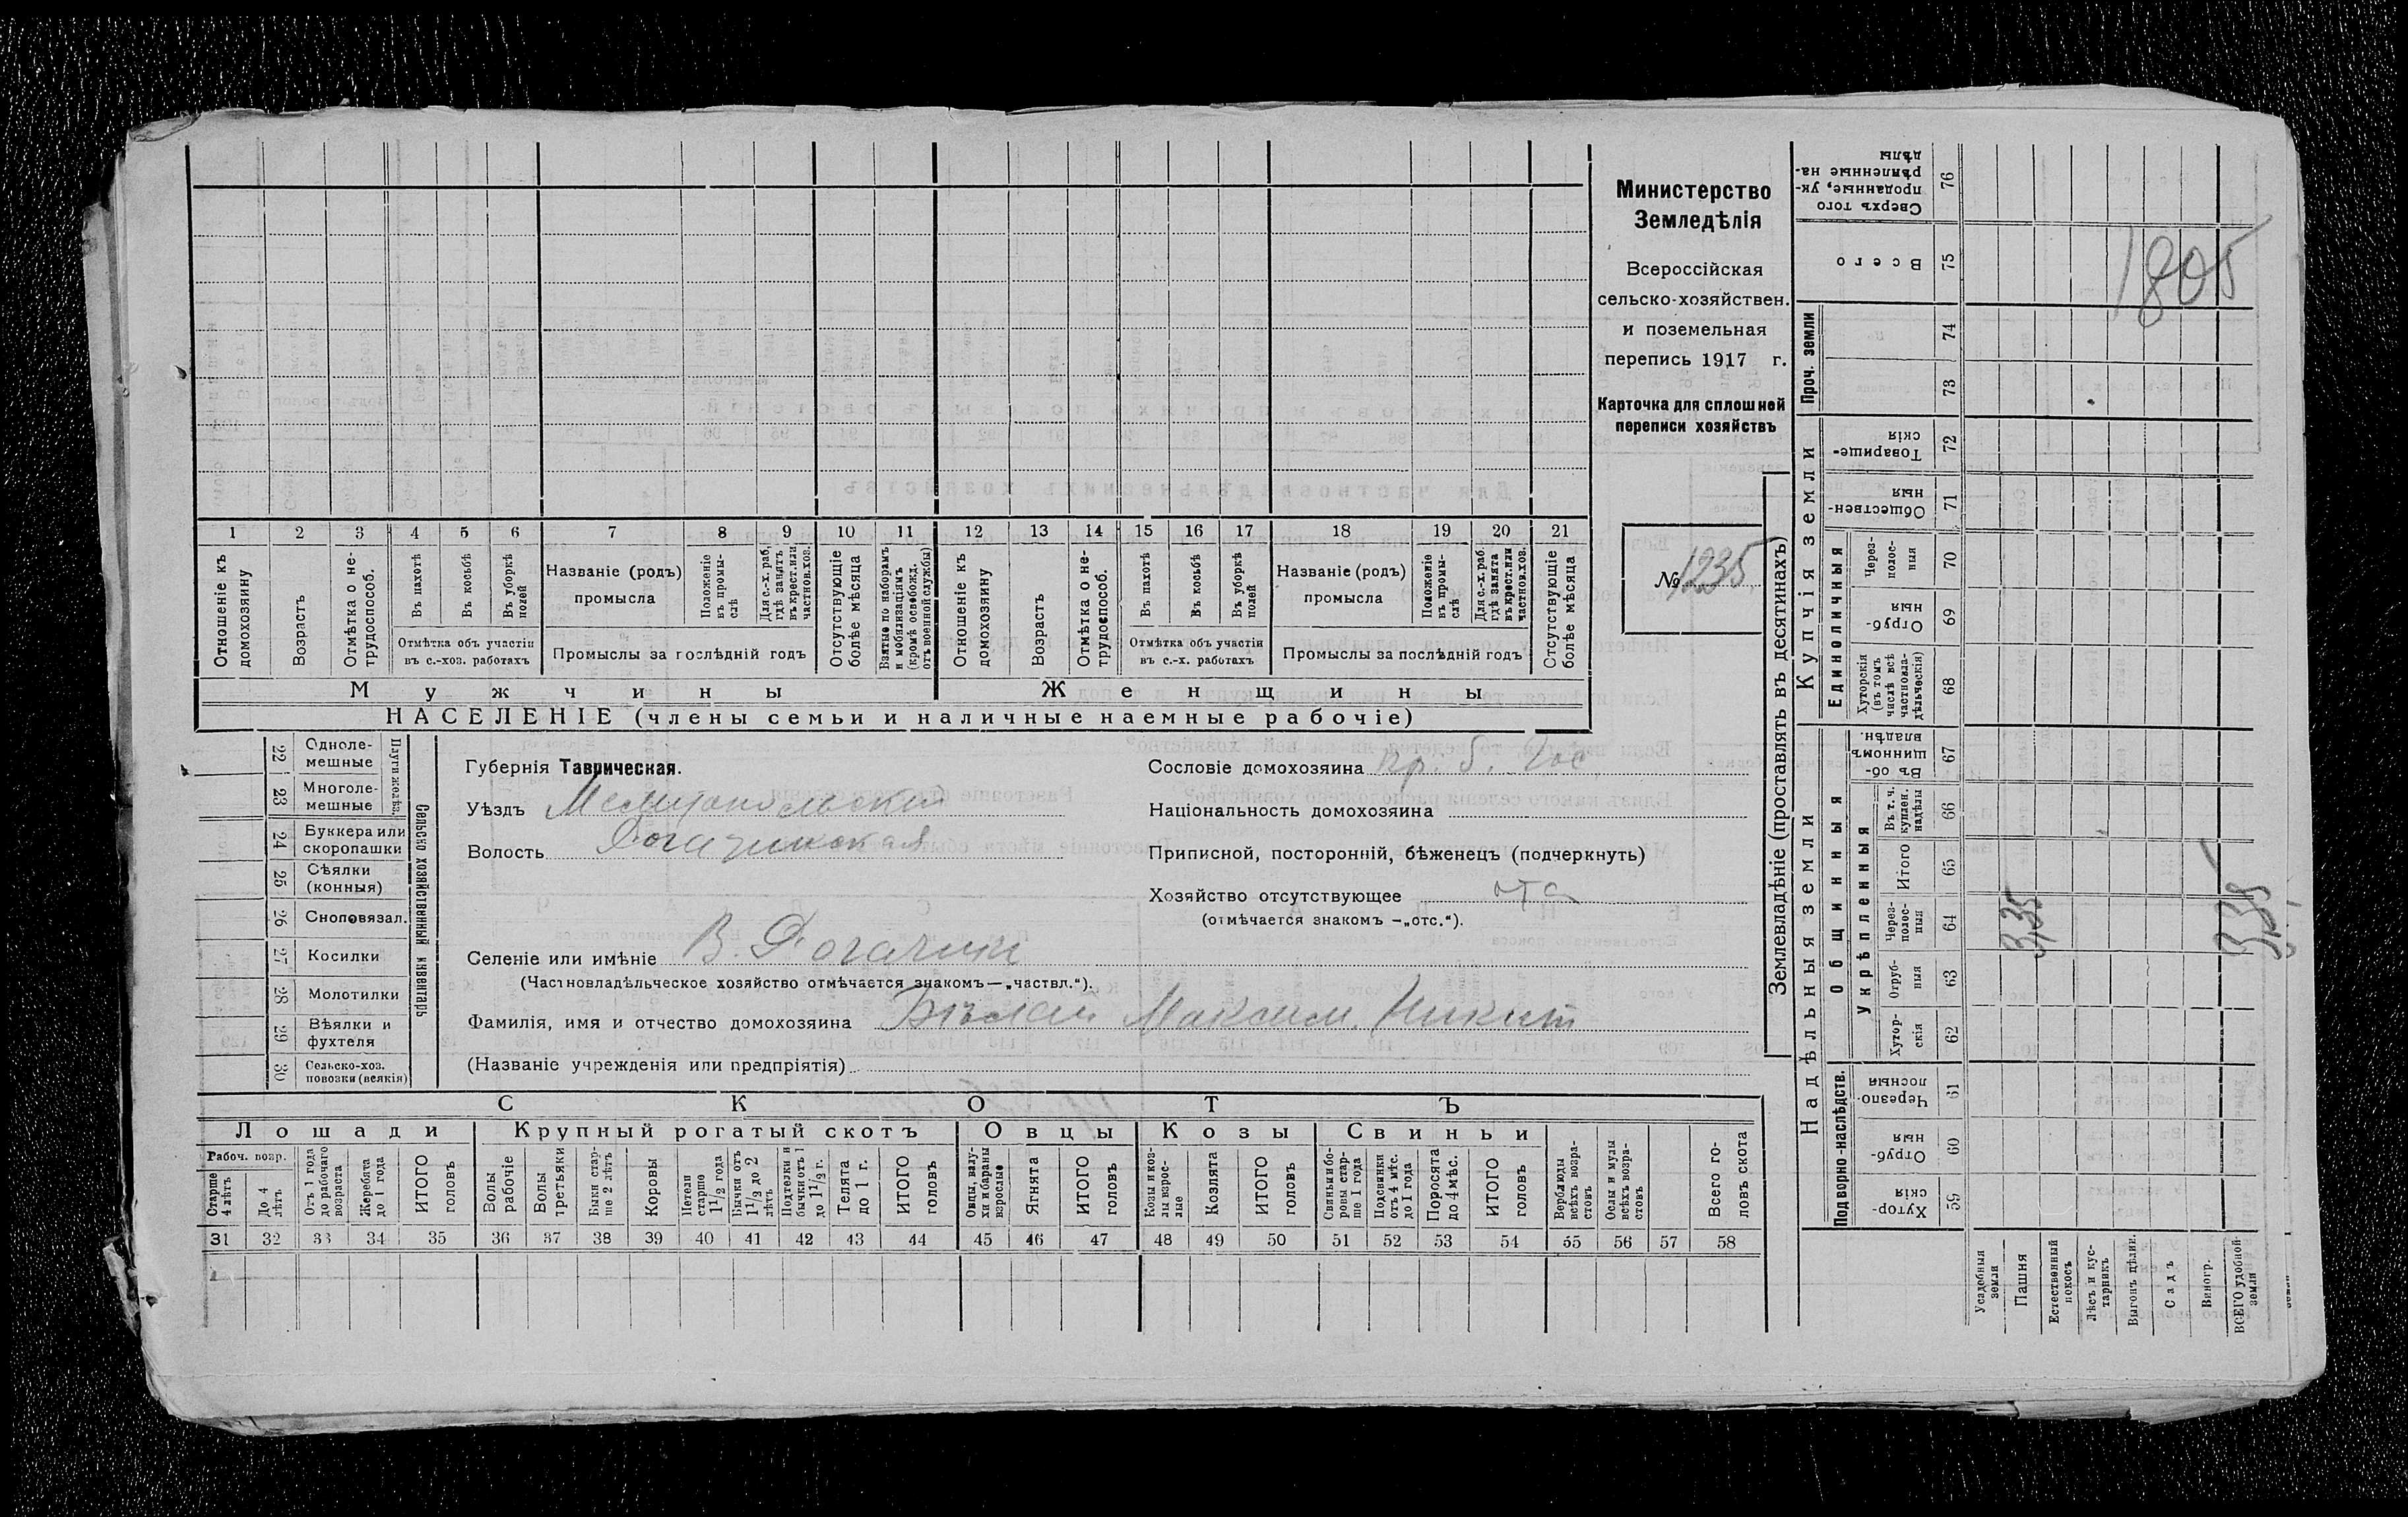 1 2 3 4 5 6 7 8 9 10 11 12 13 14 15 16 17 18 19 20 21
Отношеніе къ домохозяину
Возрастъ
Отмѣтка о не-
трудоспособ.
Въ пахотѣ
Въ косьбѣ
Въ уборкѣ
полей
Отмѣтка объ участіи
въ с.-хоз. работахъ
Названіе (родъ)
промысла
Положеніе
въ промы-
слѣ
Для с.-х. раб.
гдѣ занятъ
въ крест. или
частнов. хоз.
Промыслы за послѣдній годъ
Отсутствующіе
болѣе мѣсяца
Взятые по наборамъ
и мобилизаціямъ
(кромѣ освобожд.
отъ военной службы)
Отношеніе къ
домохозяину
Возрастъ
Отмѣтка о не-
трудоспособ.
Въ пахотѣ
Въ косьбѣ
Въ уборкѣ
полей
Отмѣтка объ участіи
въ с.-х. работахъ
Названіе (родъ)
промысла
Положеніе
въ промы-
слѣ
Для с.-х. раб.
гдѣ занята
въ крест. или
частнов. хоз.
Промыслы за послѣдній годъ
Отсутствующіе
болѣе мѣсяца
Мужчины Женщины
НАСЕЛЕНІЕ (члены семьи и наличные наемные рабочіе)
Министерство
Земледѣлія
Всероссійская
сельско-хозяйствен.
и поземельная
перепись 1917 г.
Карточка для сплошней
переписи хозяйствъ
№ 1235
22 Одноле-
мешные
23 Многоле-
мешные
Плуги желѣз.
24 Буккера или
скоропашки
25 Сѣялки
(конныя)
26 Сноповязал.
27 Косилки
28 Молотилки
29 Вѣялки и
фухтеля
30 Сельско-хоз.
повозки (всякія)
Сельско хозяйственный инвентарь
Губернія Таврическая.
Уѣздъ Мелитопольский
Волость Рогачинская
Селеніе или имѣніе В. Рогачик
(Частновладѣльческое хозяйство отмѣчается знакомъ—„частвл.“).
Фамилія, имя и отчество домохозяина Бѣлай Максим. Никит
(Названіе учрежденія или предпріятія)
Сословіе домохозяина кр. б. гос
Національность домохозяина
Приписной, посторонній, бѣженецъ (подчеркнуть)
Хозяйство отсутствующее отс
(отмѣчается знакомъ —„отс.“).
СКОТЪ
Лошади Крупный рогатый скотъ Овцы Козы Свиньи
Рабоч. возр.
Старше
4 лѣтъ
До 4
лѣтъ
Отъ 1 года
до рабочаго
возраста
Жеребята
до 1 года
ИТОГО
головъ
Волы
рабочіе
Волы
третьяки
Быки стар-
ше 2 лѣтъ
Коровы
Нетели
старше
1 1/2 года
Бычки отъ
1 1/2 до 2
лѣтъ
Подтелки и
бычки отъ 1
до 1 1/2 г.
Телята
до 1 г.
ИТОГО
головъ
Овцы, валу-
хи и бараны
взрослые
Ягнята
ИТОГО
головъ
Козы и коз-
лы взрос-
лые
Козлята
ИТОГО
головъ
Свиньи и бо-
ровы стар-
ше 1 года
Подсвинки
отъ 4 мѣс.
до 1 года
Поросята
до 4 мѣс.
ИТОГО
головъ
Верблюды
всѣхъ возра-
стовъ
Ослы и мулы
всѣхъ возра-
стовъ
Всего го-
ловъ скота
31 32 33 34 35 36 37 38 39 40 41 42 43 44 45 46 47 48 49 50 51 52 53 54 55 56 57 58
Землевладѣніе (проставлять въ десятинахъ)
Надѣльныя земли
Купчія земли
Проч. земли
Подворно-наслѣдств.
Общинныя
Укрѣпленныя
Единоличныя
Хутор-
скія 59
Отруб-
ныя 60
Черезпо-
лосныя 61
Хутор-
скія 62
Отруб-
ныя 63
Через-
полос-
ныя 64
Итого 65
Въ т. ч.
куплен.
надѣлы 66
Въ об-
щинномъ
владѣн. 67
Хуторскія
(въ томъ
числѣ всѣ
частновла-
дѣльческія) 68
Отруб-
ныя 69
Через-
полос-
ныя 70
Обществен-
ныя 71
Товарище-
скія 72
73
74
Всего 75
Сверхъ того
проданные, ук-
рѣпленные на-
дѣлы 76
Усадебныя
земли
Пашня
Естественный
покосъ
Лѣсъ и кус-
тарникъ
Выгонъ цѣлин.
Садъ
Виногр.
ВСЕГО удобной
земли
3,35
3,35
1805